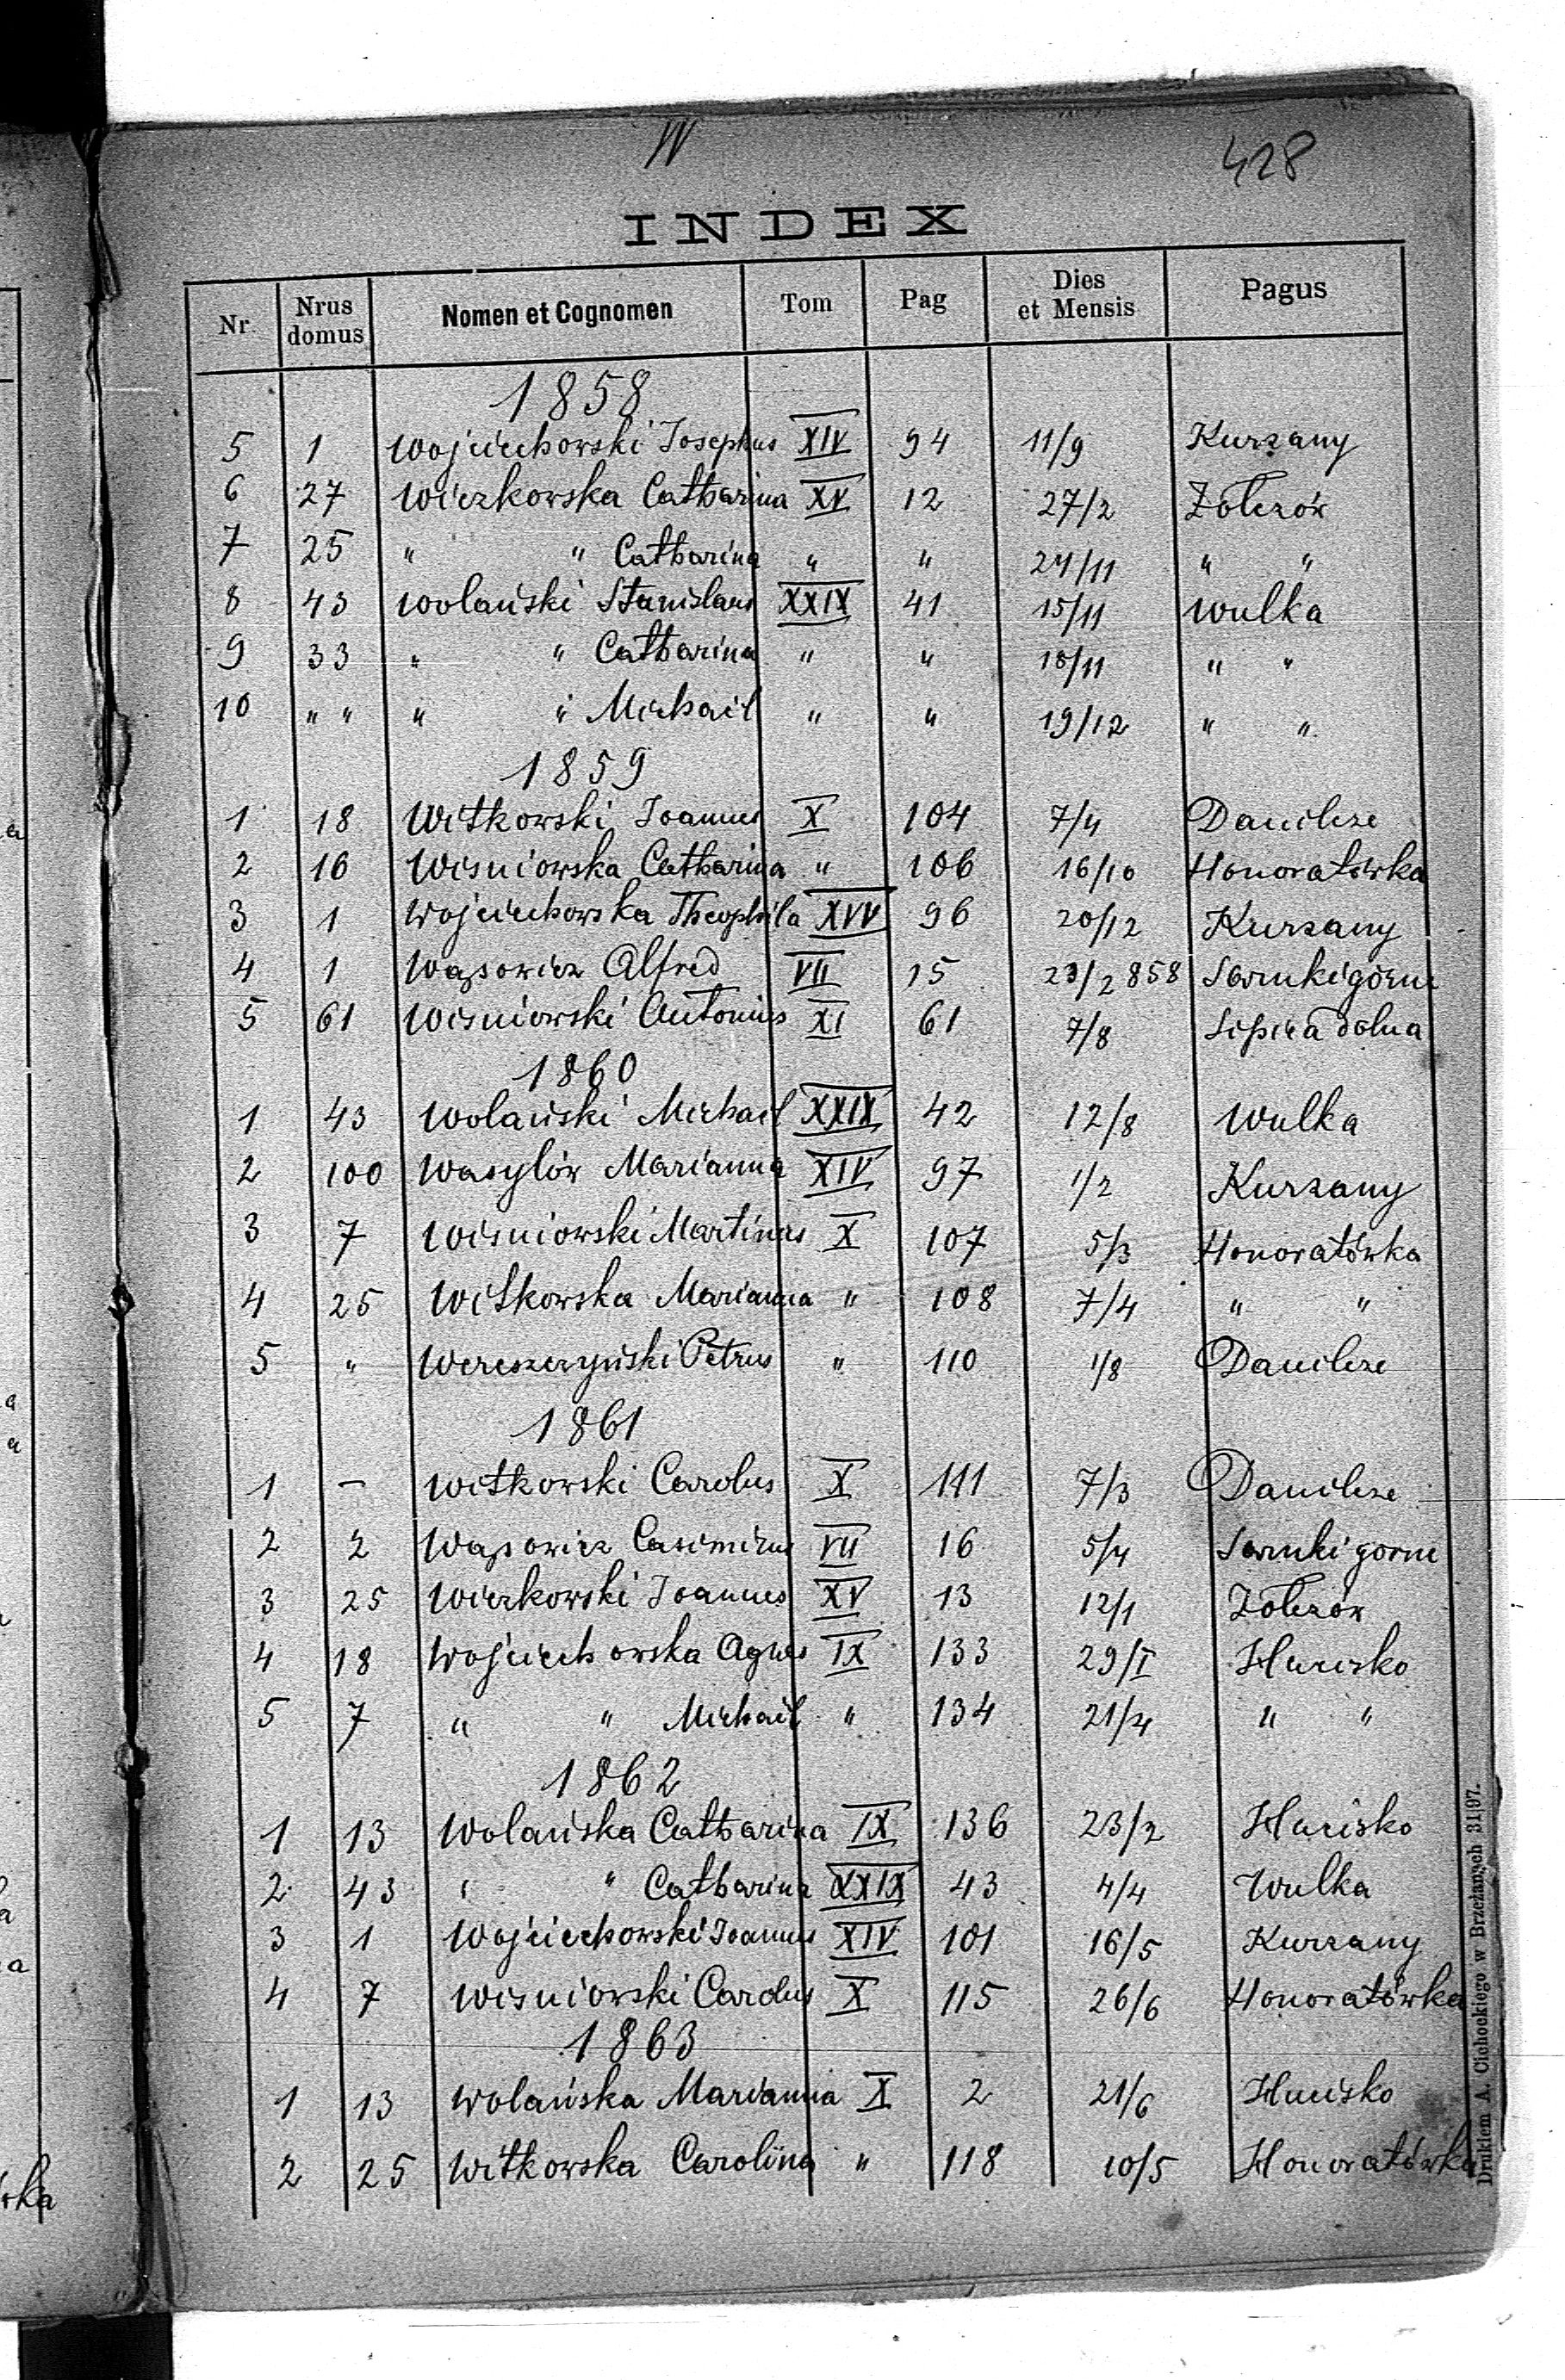 W
428
INDEX
Nr Nrus domus Nomen et Cognomen Tom Pag Dies et Mensis Pagus
1858
5 1 Wojciechowski Josephus XIV 94 11/9 Kurzany
6 27 Wierzkowska Catharina XV 12 27/2 Żołczów
7 25 " " Catharina " " 24/11 " "
8 43 Wolański Stanislaus XXIX 41 15/11 Wulka
9 33 " " Catharina " " 18/11 " "
10 " " " " Michael " " 19/12 " "
1859
1 18 Witkowski Joannes X 104 7/4 Danilcze
2 16 Wisniowska Catharina " 106 16/10 Honoratówka
3 1 Wojciechowska Theophila XVV 96 20/12 Kurzany
4 1 Wąsowicz Alfred VII 15 23/2 858 Sarnki górne
5 61 Wisniewski Antonius XI 61 7/8 Lipica dolna
1860
1 43 Wolański Michael XXIX 42 12/8 Wulka
2 100 Wasylów Marianna XIV 97 1/2 Kurzany
3 7 Wisniowski Martinus X 107 5/3 Honoratówka
4 25 Witkowska Marianna " 108 7/4 " "
5 " Wereszczyński Petrus " 110 1/8 Danilcze
1861
1 – Witkowski Carolus X 111 7/3 Danilcze
2 2 Wąsowicz Casimirus VII 16 5/4 Sarnki gorne
3 25 Wierzkowski Joannes XV 13 12/1 Żołczów
4 18 Wojciechowska Agnes IX 133 29/I Hucisko
5 7 " " Michael " 134 21/4 " "
1862
1 13 Wolańska Catharina IX 136 23/2 Hucisko
2 43 " " Catharina XXIX 43 4/4 Wulka
3 1 Wojciechowski Joannes XIV 101 16/5 Kurzany
4 7 Wisniowski Carolus X 115 26/6 Honoratówka
1863
1 13 Wolańska Marianna X 2 21/6 Hucisko
2 25 Witkowska Carolina " 118 10/5 Honoratówka
Drukiem A. Cichockiego w Brzeżanach 31|97.